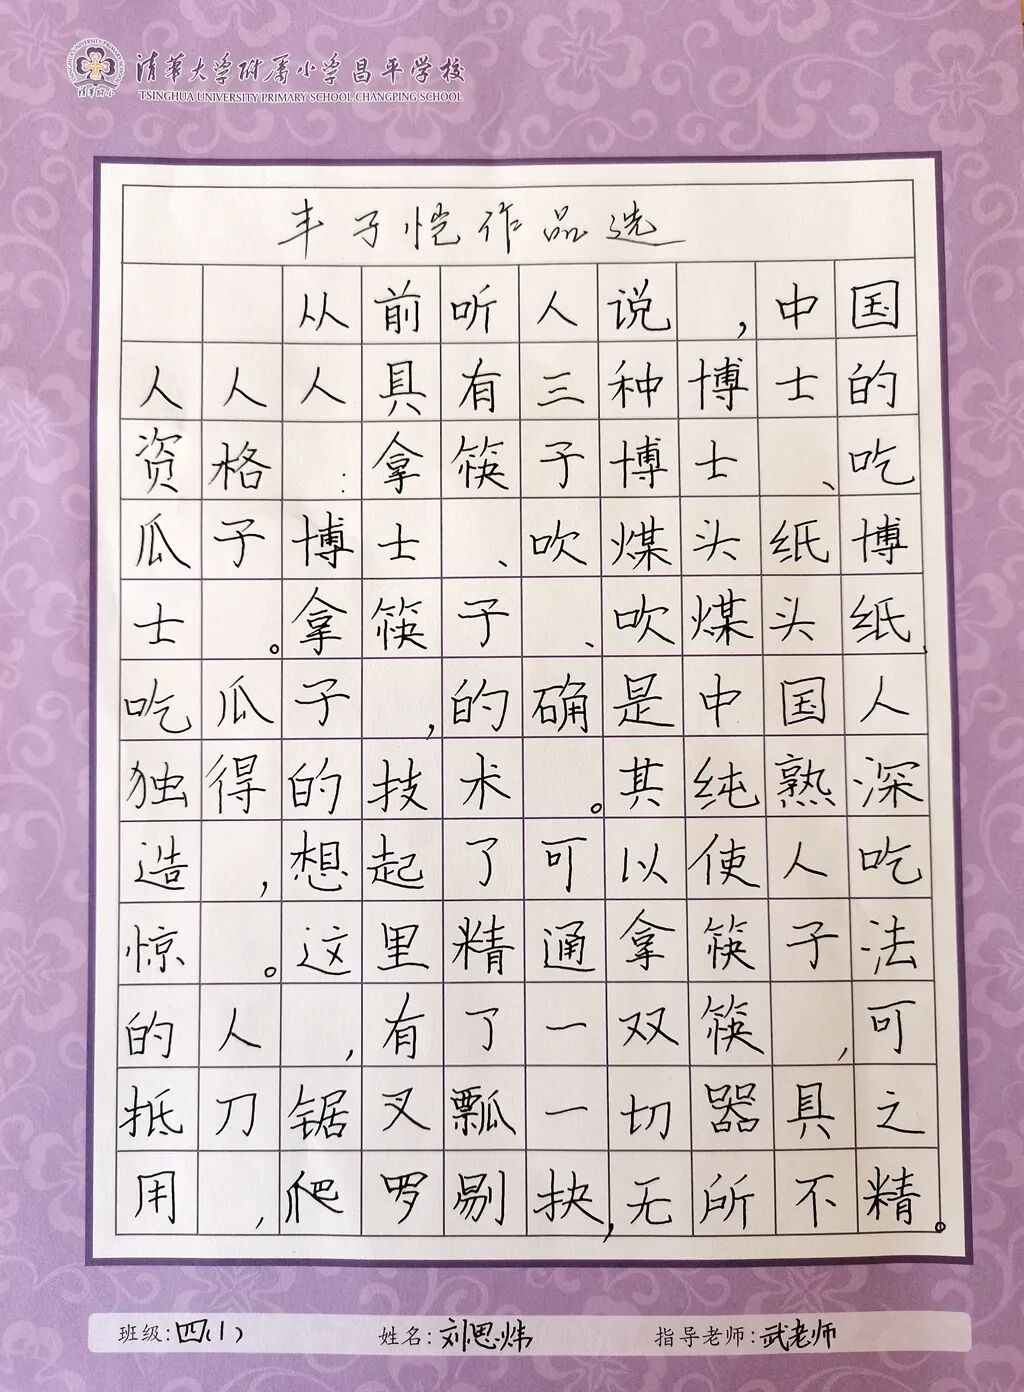 清华大学附属小学昌平学校
TSINGHUA UNIVERSITY PRIMARY SCHOOL CHANGPING SCHOOL
丰子恺作品选
从前听人说，中国
人人人具有三种博士的
资格：拿筷子博士、吃
瓜子博士、吹煤头纸博
士。拿筷子、吹煤头纸、
吃瓜子，的确是中国人
独得的技术。其纯熟深
造，想起了可以使人吃
惊。这里精通拿筷子法
的人，有了一双筷，可
抵刀锯叉瓢一切器具之
用，爬罗剔抉，无所不精。
班级：四(1) 姓名：刘思炜 指导老师：武老师